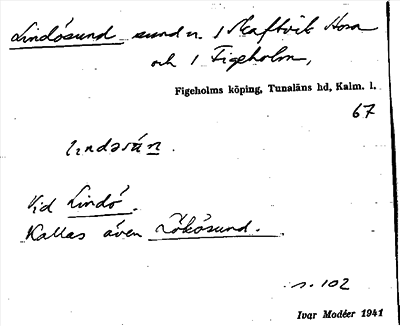 Lindösund sund n. / Skaftvik Hosa
och / Figeholm,
Figeholms köping, Tunaläns hd, Kalm. l.
67
Vid Lindö.
Kallas även Lökösund.
s. 102
Ivar Modéer 1941